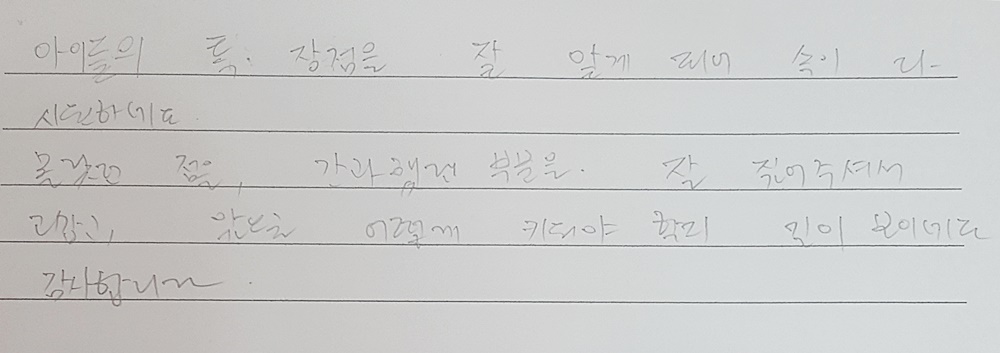 아이들의 특. 장점을 잘 알게 되어 속이 다
시원하네요.
몰랐던 점을, 간과했던 부분을. 잘 짚어주셔서
고맙고, 앞으로 어떻게 키워야 할지 길이 보이네요
감사합니다.